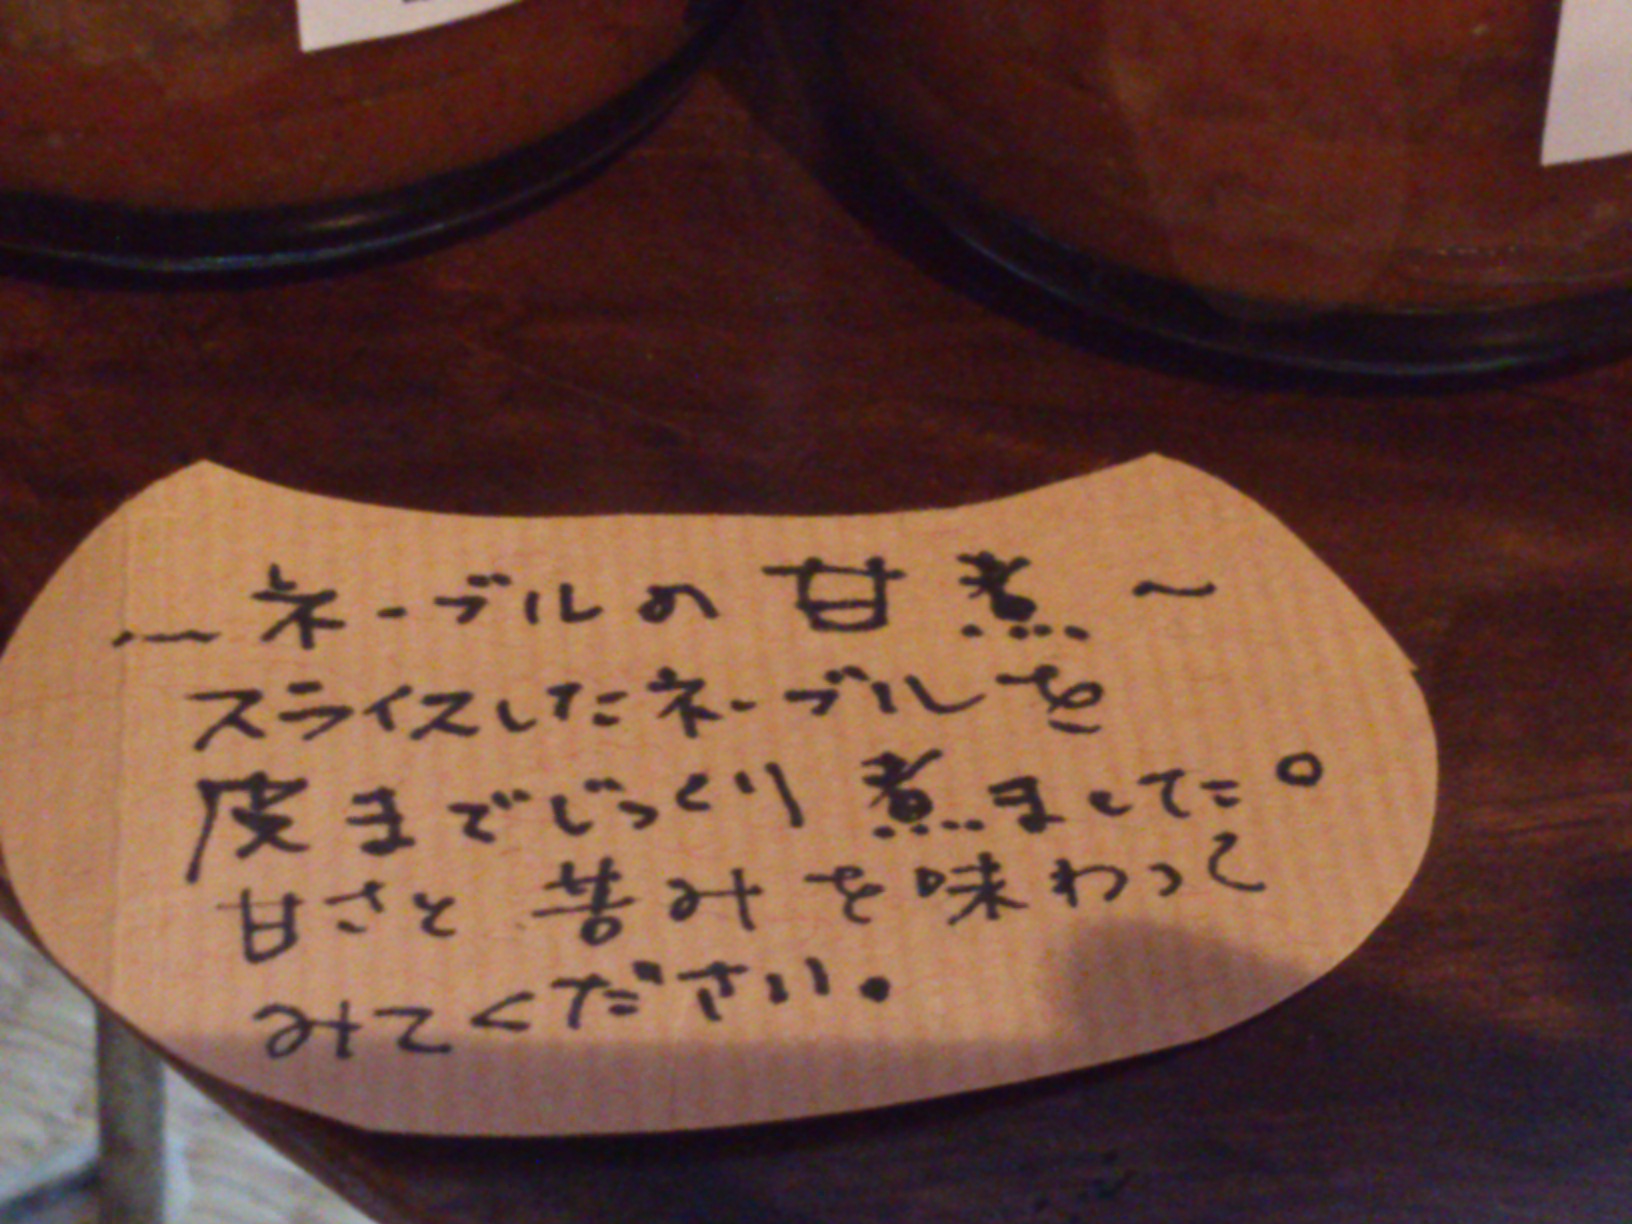 ～ネーブルの甘煮～
スライスしたネーブルを
皮までじっくり煮ました。
甘さと苦みを味わって
みてください。